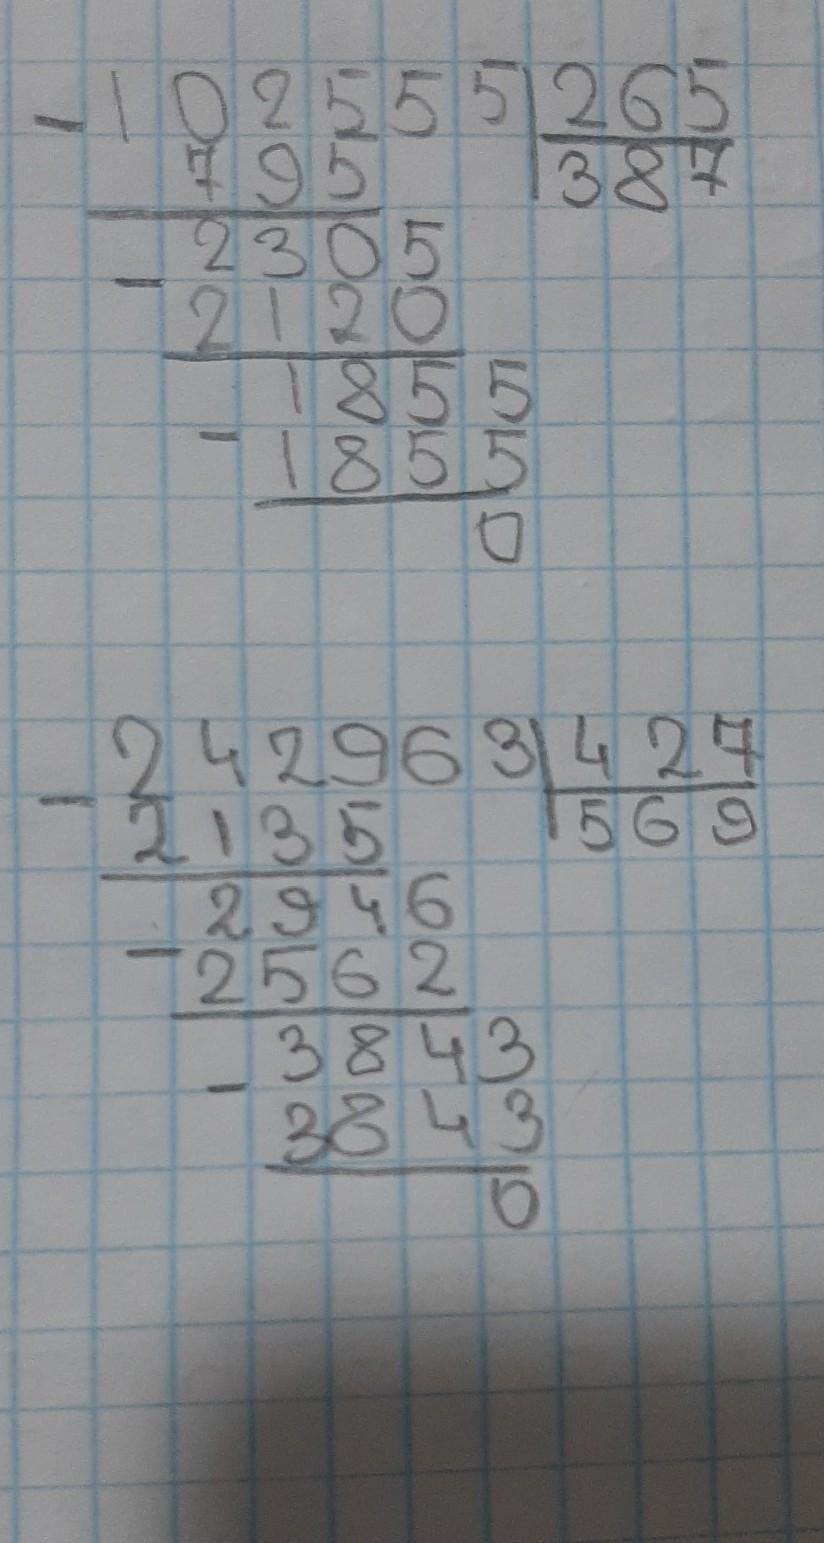 - 102555 | 265
795 | 387
2305
- 2120
1855
- 1855
0
- 242963 | 427
2135 | 569
2946
- 2562
3843
- 3843
0